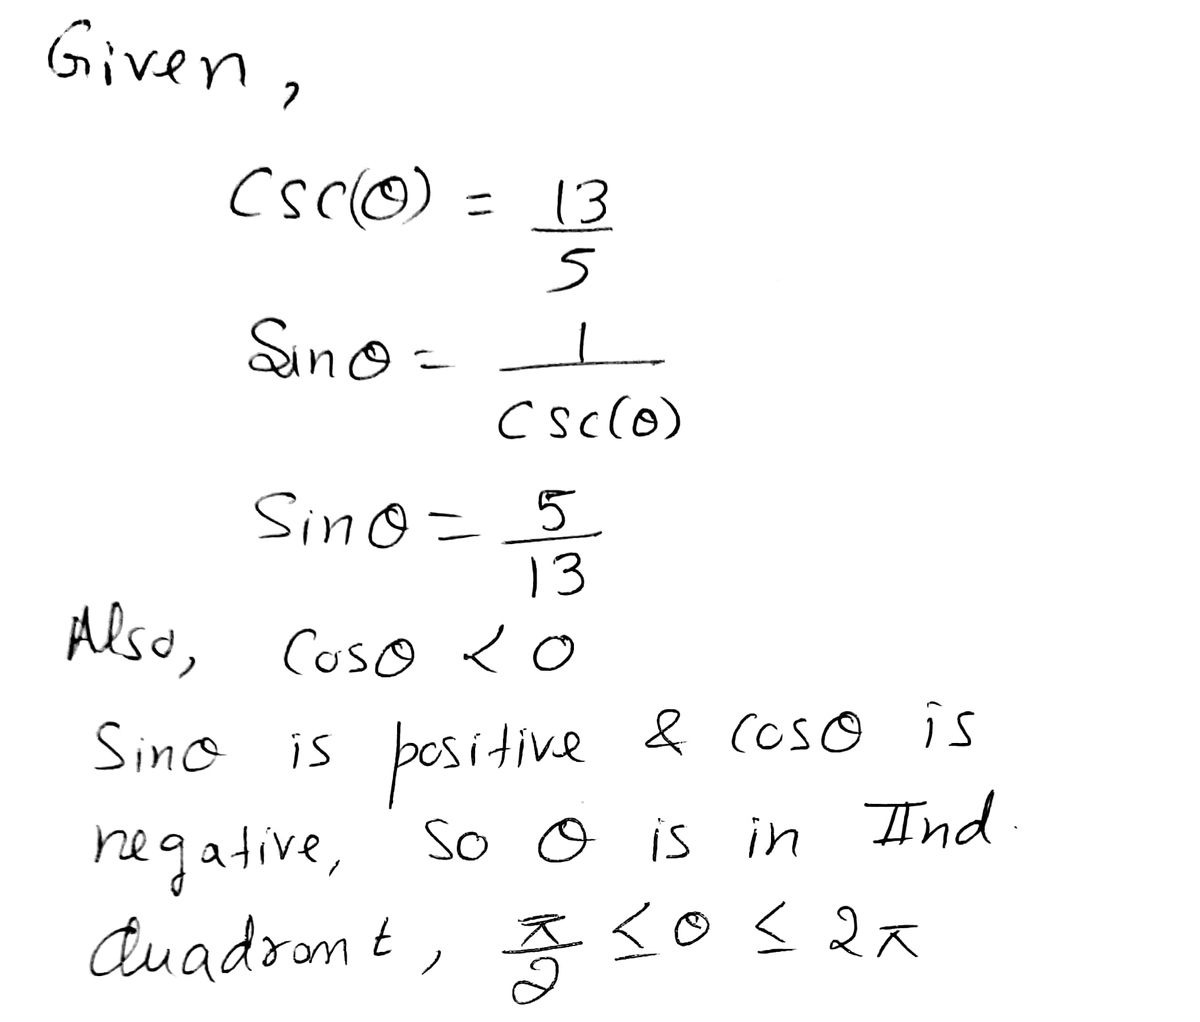 Given,
Csc(θ) = 13/5
Sinθ = 1/Csc(θ)
Sinθ = 5/13
Also, Cosθ < 0
Sinθ is positive & cosθ is
negative, So θ is in IInd.
Quadrant, π/2 ≤ θ ≤ 2π